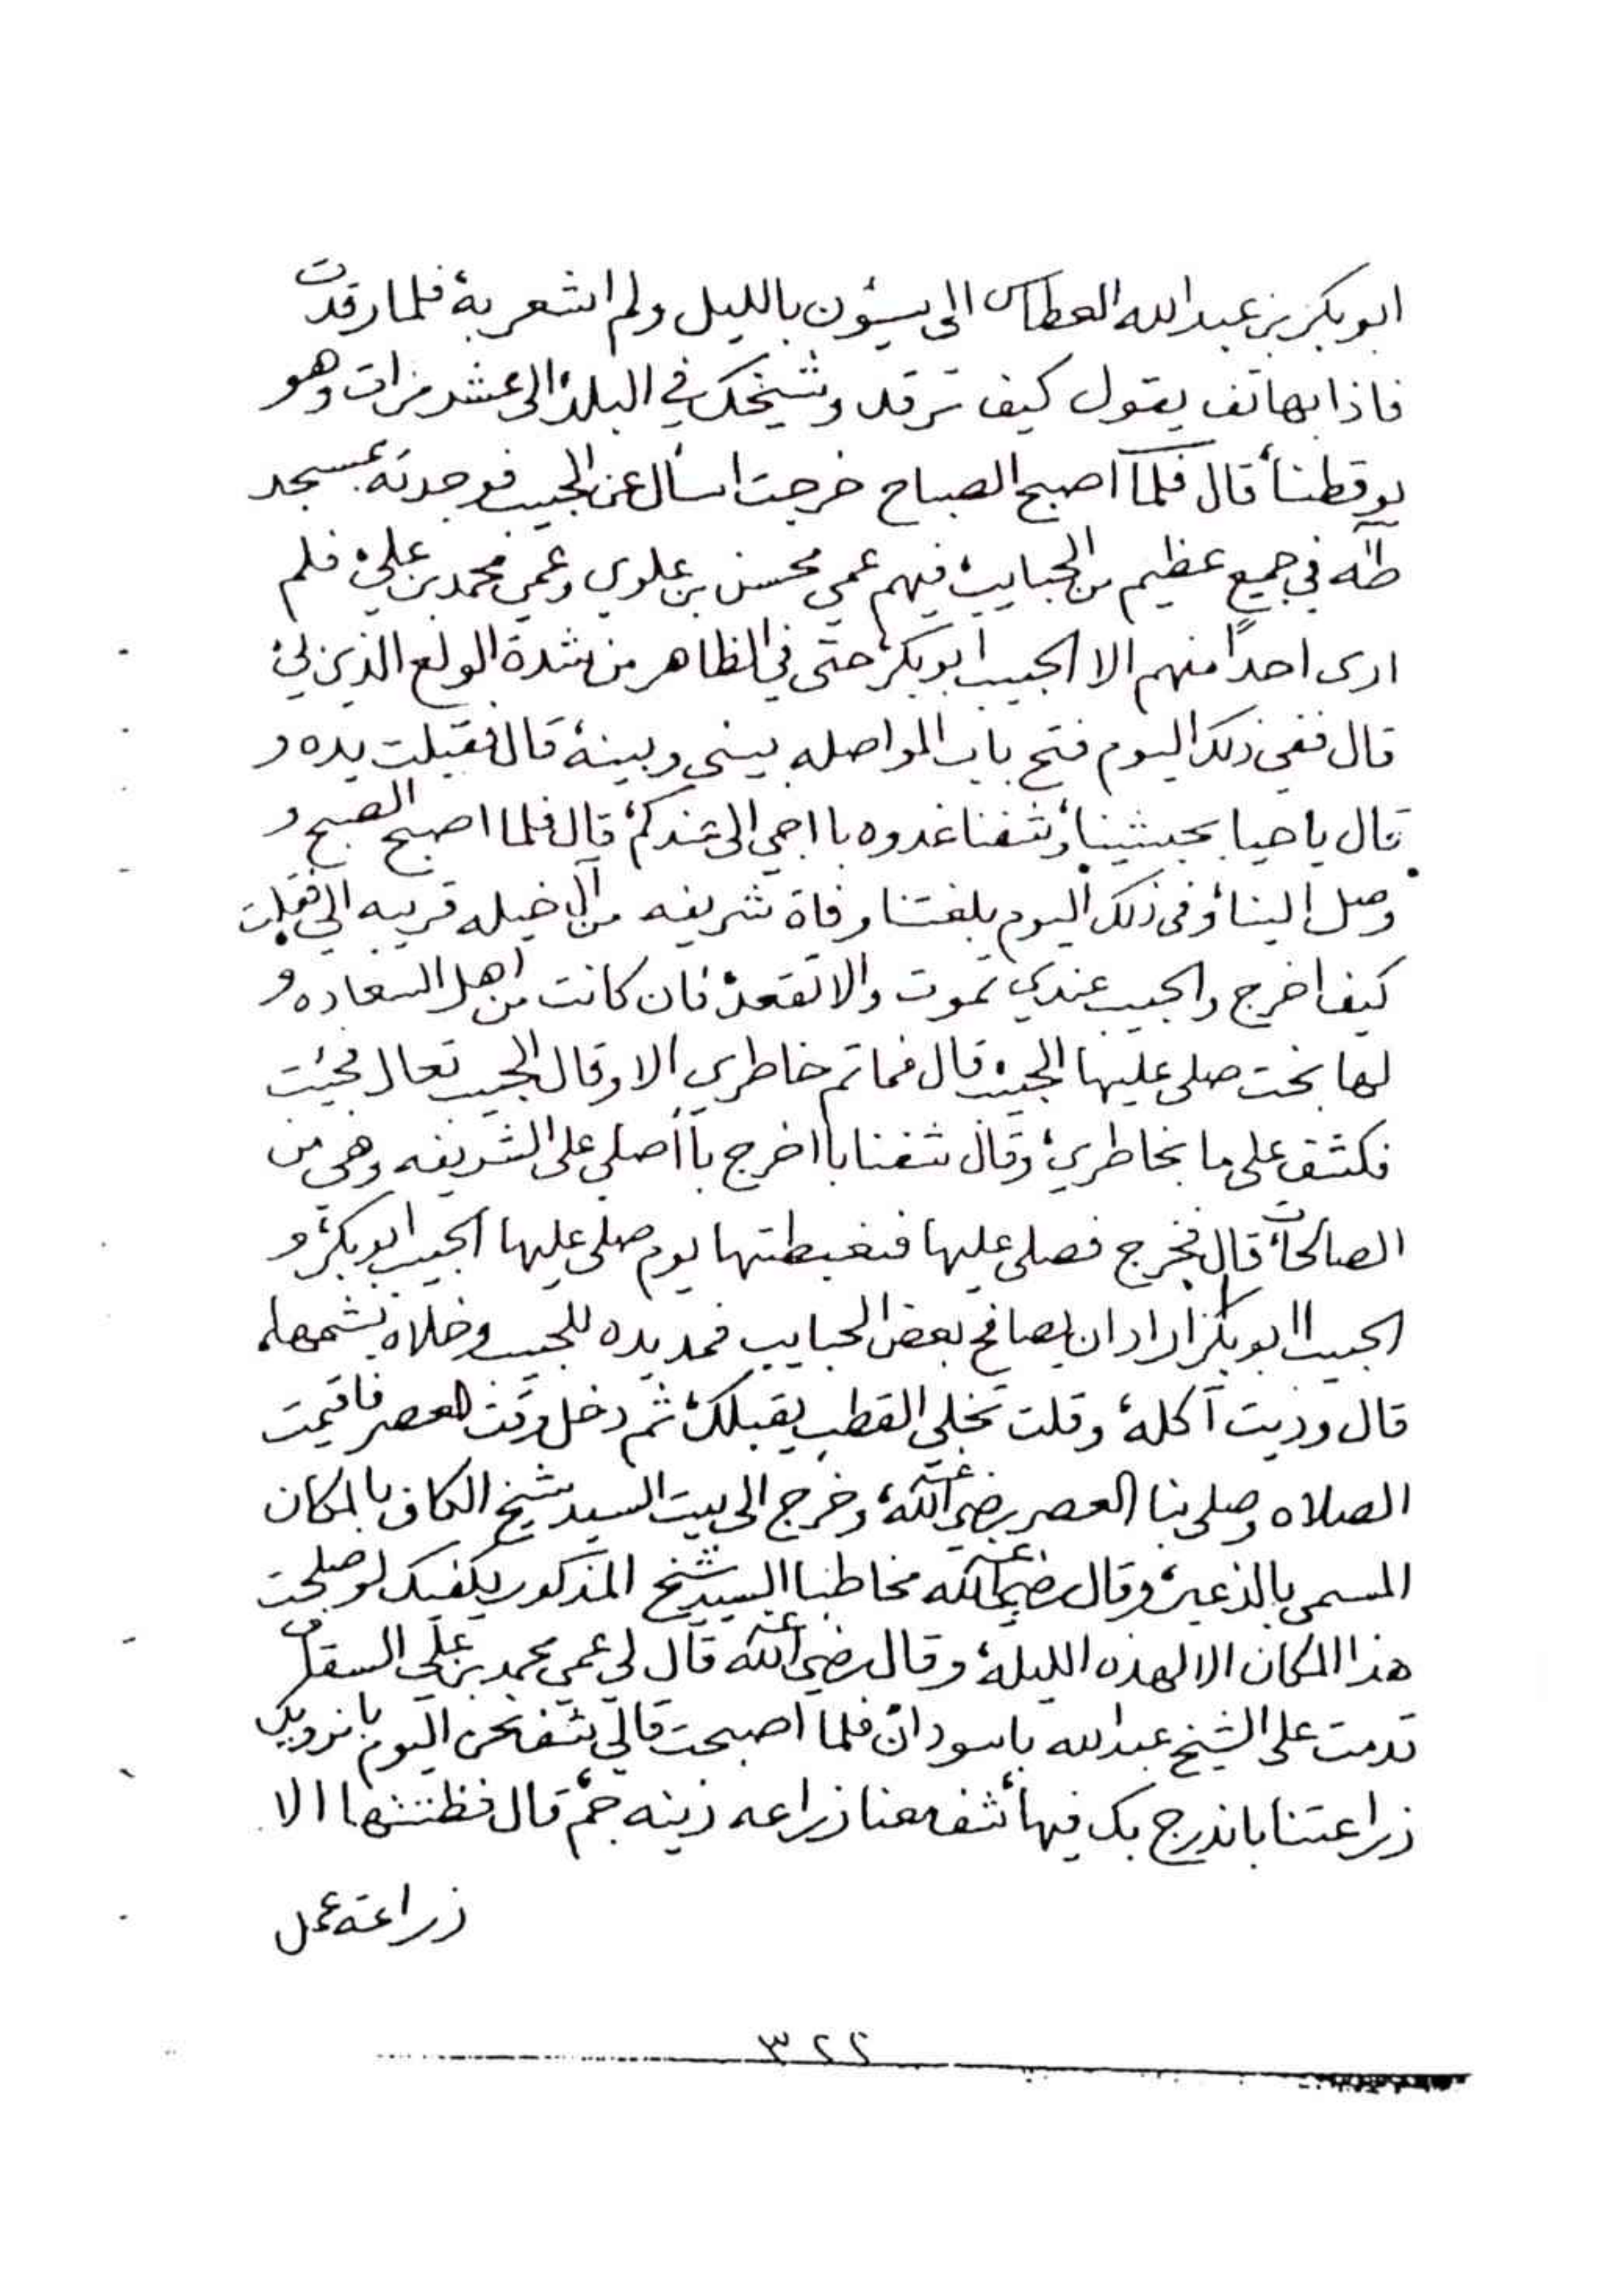 ابوبكر بن عبد الله العطاس الى سيؤن بالليل ولم اشعر به، فلما رقدت
فاذا بهاتف يقول كيف ترقد وشيخك في البلد، الى عشر مرات وهو
يوقظنا، قال فلما اصبح الصباح خرجت اسأل عن الحبيب فوجدته بمسجد
طه في جمع عظيم من الحبايب، فيهم عمي محسن بن علوي وعمي محمد بن علي، فلم
ارى احداً منهم الا الحبيب ابوبكر، حتى في الظاهر من شدة الولع الذي لي،
قال ففي ذلك اليوم فتح باب المواصله بيني وبينه، قال فقبلت يده و
قال يا حيا بحبيبنا، وشفنا غدوه با اجي الى عندكم، قال فلما اصبح الصبح و
وصل الينا، وفى ذلك اليوم بلغتنا وفاة شريفه من آل قريبه الي فقلت
كيف اخرج والحبيب عندي تموت والا تقعد، فان كانت من اهل السعاده و
لها بخت صلى عليها الحبيب، قال فما تم خاطري الا وقال الحبيب تعال فجئت
فكشف على ما بخاطري، وقال شفنا با اخرج با أصلي على الشريفه وهي من
الصالحات، قال فخرج فصلى عليها فغبطتها يوم صلى عليها الحبيب ابوبكر، و
الحبيب ابوبكر اراد ان يصافح بعض الحبايب فمد يده للحبيب وخلاه يشمها،
قال وديت آكله، وقلت تخلي القطب يقبلك، ثم دخل وقت العصر فاقيمت
الصلاه وصلى بنا العصر رضي الله عنه، وخرج الى بيت السيد شيخ الكاف بالمكان
المسمى وقال رضي الله عنه مخاطبا السيد شيخ المذكور يكفيك لو صلحت
هذا المكان الا لهذه الليله، وقال رضي الله عنه قال لي عمي محمد بن علي السقاف
قدمت على الشيخ عبد الله باسودان، فلما اصبحت قال لي شف نحن اليوم با نوديك
زراعتنا باندرج بك فيها، شف معنا زراعه زينه جم، قال فظننتها الا
زراعة عمل
٣٢٢